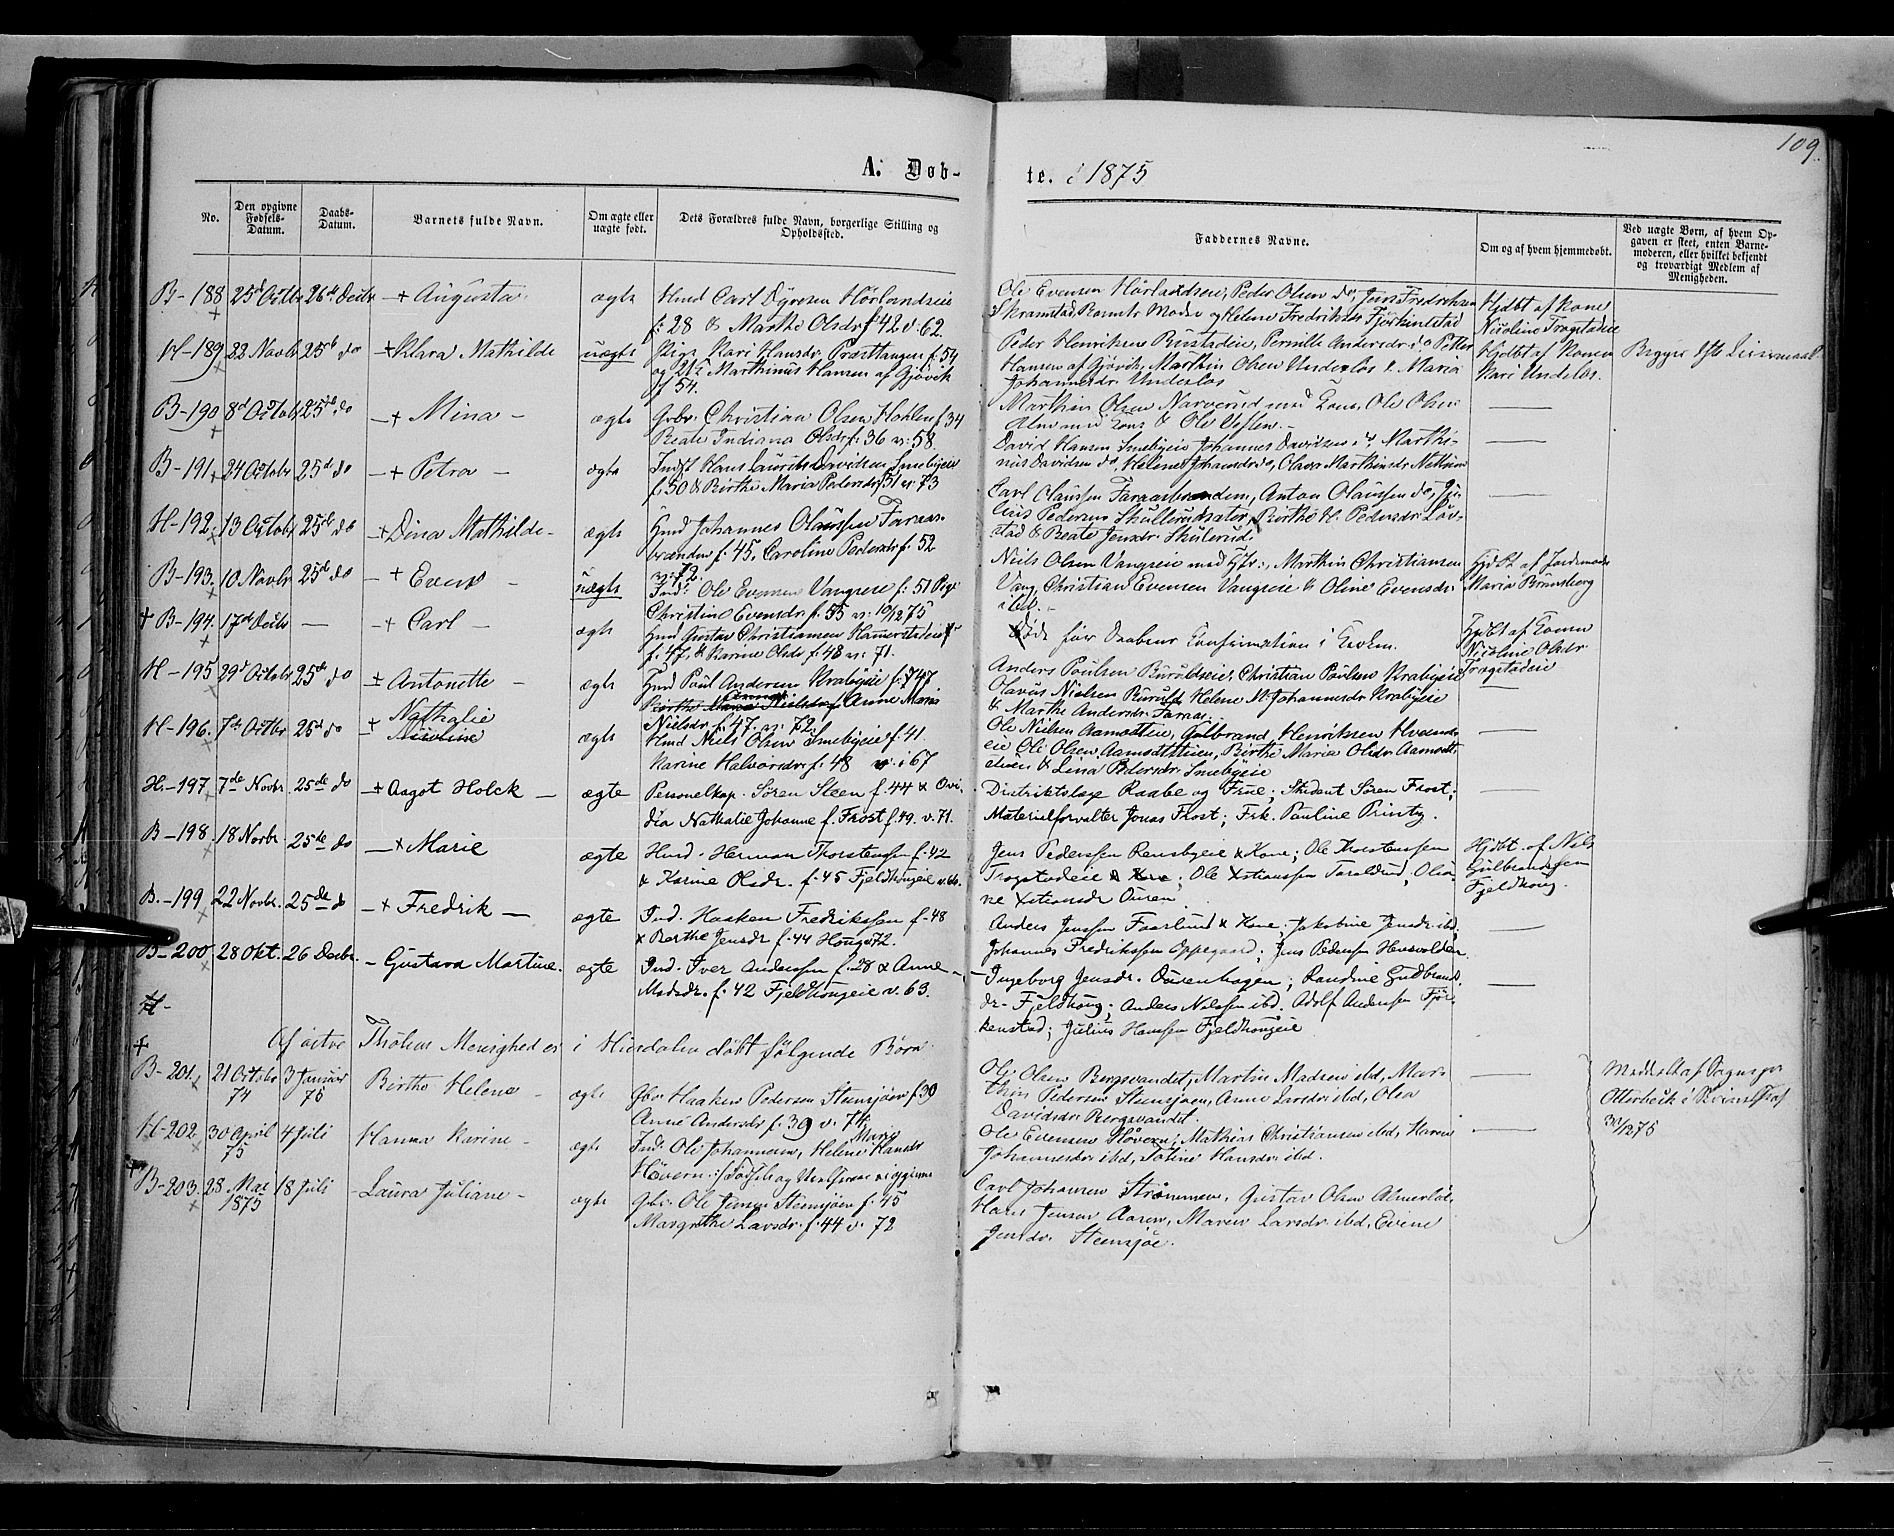 109.
A. Døb-
te. i 1875
No.
Den opgivne Fødsels-Datum.
Daabs-Datum.
Barnets fulde Navn.
Om ægte eller uægte født.
Dets Forældres fulde Navn, borgerlige Stilling og Opholdssted.
Faddernes Navne.
Om og af hvem hjemmedøbt.
Ved uægte Børn, af hvem Op-
gaven er skeet, enten Barne-
moderen, eller hvilket bekjendt
og troværdigt Medlem af
Menigheden.
B-188 25d Octbr 26de Decbr + Augusta ægte
f: 28 & Marthe Olsdr f 42 v: 62.
Ole Evensen Peder Olsen do,
og Helene Fredriksdr
Hjdbt af Kone
Nicoline Trogstadeie
H-189 22 Novbr 25de do + Klara Mathilde uægte Pige Kari Hansdr f: 54
og Marthinus Hansen af Gjøvik
f 54.
Peder Henriksen Rustadeie, Pernille Andersdr do Petter
Hansen af Gjøvik, Marthin Olsen Underlos & Maria
Johannesdr Underlos
Hjdbt af Konen
Kari Underlos.
B-190 8d Octobr 25de do + Mina - ægte Grbr. Christian Olsen f 34
Beate Indiana Olsdr f: 36 v: 58.
Marthin Olsen Narverud med Kone, Ole Olsen
B-191 24 Octobr 25d do + Petra - ægte Indst Hans Laurits Davidsen Smebyeie
f. 50 & Birthe Maria Pedersdr f 51 v: 73
David Hansen Smebyeie Johannes Davidsen do, Marthi-
nus Davidsen do, Helene Johansdr do, Olava Marthinsdr
H-192. 13 Octobr 25de do + Dina Mathilde - ægte Hmd Johannes Olaussen Faraas-
branden f: 45, Caroline Pedersdr f: 52
v: 72
Carl Olaussen Faraasbranden, Anton Olaussen do,
Pedersen Birthe H. Pedersdr
stad & Beate Jensdr Skulerud
B-193. 10 Novbr 25d do - + Even - uægte Ind: Ole Evensen Vangseie f: 51 Pige
Christine Evensdr f. 55 v: 10/12 75
Niels Olsen Vangseie med Hstr:, Marthin Christiansen
Vang, Christian Evensen Vangseie & Oline Evensdr
ibd. -
Hjdbt af Jordemoder
Maria Brunsberg
+ B-194. 17de Decbr - - + Carl - ægte Hmd Gustav Christiansen
f: 47, & Karine Olsdr f: 48 v: 71.
Døde før Daabens Confirmation i Kirken.
Hjdbt af Konen
Nicoline Olsdr
Trogstadeie
H-195 29d Octobr 25de do ± Antonette - ægte Hmd Paul Andersen Krabyeie f: 47
Anne Maria
Nielsdr f. 47. v: 72.
Anders Paulsen Christian Paulsen Krabyeie
Olavus Nielsen Helene M. Johannesdr Krabyeie
& Marthe Andersdr Faraas.
H-196. 7de Octbr 26d do + Nathalie Nicoline ægte Hmd Niels Olsen Smebyeie f 41.
Karine Halvorsdr f: 48 v: i 67
Ole Nielsen Aamodteie, Gulbrand Henriksen
eie Ole Olsen Birthe Maria Olsdr Aamodt-
& Lina Pedersdr Smebyeie
H.-197 7de Novbr 25de do - + Aagot Holck - ægte Personelkap. Søren Steen f. 44 & Ovi-
dia Nathalie Johanne f. Frost f. 49. v. 71.
Distriktslæge Raabe og Frue; Student Søren Frost;
Materielforvalter Jonas Frost; Frk. Pauline Printz.
B-198. 18 Novbr. 25de do - + Marie ægte Hmd. Herman Thorstensen f. 42
& Karine Olsdr. f. 45 Fjeldhougeie v. 66.
Jens Pederssen Rensbyeie & Kone; Ole Thorstenssen
Trogstadeie; Ole Xstianssen Taraldrud, Olia-
ne Xstiansdr Øuren.
Hjdbt. af Nils
Gulbrandssen
Fjeldhoug.
B.-199 22 Novbr. 25de do - + Fredrik - ægte Ind. Haaken Fredrikssen f. 48
& Berthe Jensdr f. 44 Houg v 72.
Anders Jenssen Faarlund & Kone; Jakobine Jensdr ibd.
Johannes Fredrikssen Oppegaard; Jens Pederssen
B-200 28 Okt. 26 Decbr. - Gustava Martine. ægte Ind. Iver Anderssen f. 28 & Anne
Madsdr. f. 42 Fjeldhougeie v. 63.
Ingeborg Jensdr. Ourenhagen; Randine Gudbrands-
dr. Fjeldhoug; Anders Nilssen ibd. Adolf Anderssen Fjør-
kenstad; Julius Hanssen Fjeldhougeie
H-
+ Af østre Thotens Menighed er i Hurdalen døbt følgende Børn:
B-201. 21 Octobr 74 3 Januar 75 Birthe Helene - ægte Gbr Haaken Pedersen Steensjøen f. 39
Anne Andersdr f. 39 v. 74
Ole Olsen Bergsvandet, Martin Madsen ibd, Mar-
thin Pedersen Steensjoen, Anne Larsdr ibd, Olea
Davidsdr Bergsvandet.
30/12 75
H-202. 30 April 75 4 Juli Hanna Karine - ægte Ind: Ole Johannesen, Helene Maria Hansdr
Høvern:
Ole Evensen Høvern; Mathias Christiansen ibd, Karen
Johannesdr ibd, Hansdr ibd.
B-203. 28. Mai 1875 18 Juli - Laura Juliane - ægte Gbr. Ole Jensen Steensjøen f. 45
Margrethe Larsdr. f. 44 v. 72
Carl Johansen Strømmen, Gustav Olsen
Hans Jensen Aasen, Maren Larsdr ibd, Eveline
Jensdr Steensjøe.